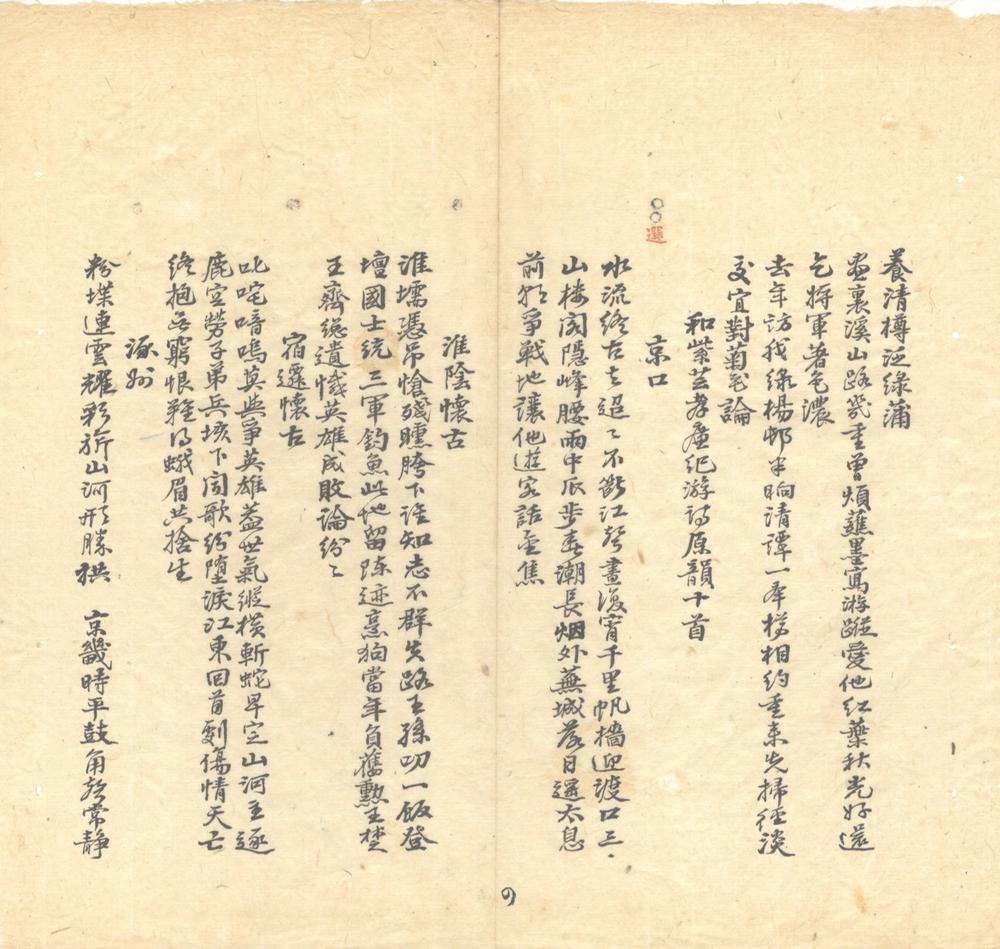 養清樽泛綠蒲
畫裏溪山路幾重曾煩蘸墨寫游蹤愛他紅葉秋光好還
乞將軍著色濃
去年訪我綠楊邨半晌清譚一奉樽相約重來先掃徑淡
交宜對菊花論
和紫芸孝廉紀游詩原韻十首
選
京口
水流終古去迢々不斷江聲晝復宵千里帆檣迎渡口三
山樓閣隱峰腰雨中瓜步春潮長烟外蕪城落日遙太息
前朝爭戰地讓他遊客話金焦
淮陰懷古
淮壖憑吊愴殘曛胯下誰知志不群失路王孫叨一飯登
壇國士統三軍釣魚此地留陳迹烹狗當年負舊勳王楚
王齊總遺憾英雄成敗論紛々
宿遷懷古
叱咤喑嗚莫與爭英雄蓋世氣縱橫斬蛇早定山河主逐
鹿空勞子弟兵垓下聞歌紛墮淚江東回首劇傷情天亡
終抱無窮恨難得蛾眉共捨生
涿州
粉堞連雲耀彩旂山河形勝拱 京畿時平鼓角聲常静